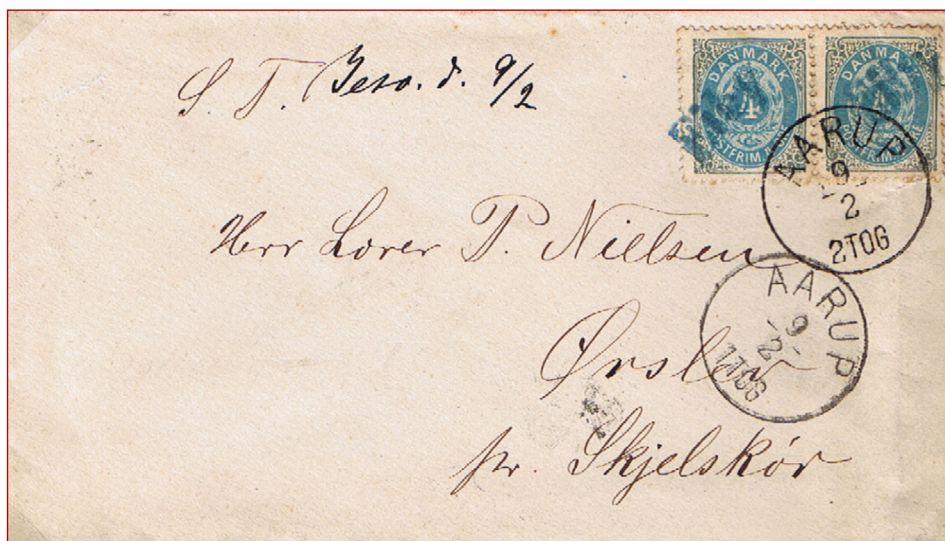 S. T. Besv. d. 9/2
DANMARK
4
POSTFRIM
DANMARK
4
POSTFRIM
AARUP
9
2
2TOG
Herr Lærer P. Nielsen
AARUP
9
2
1TOG
Ørslev
pr. Skjelskör